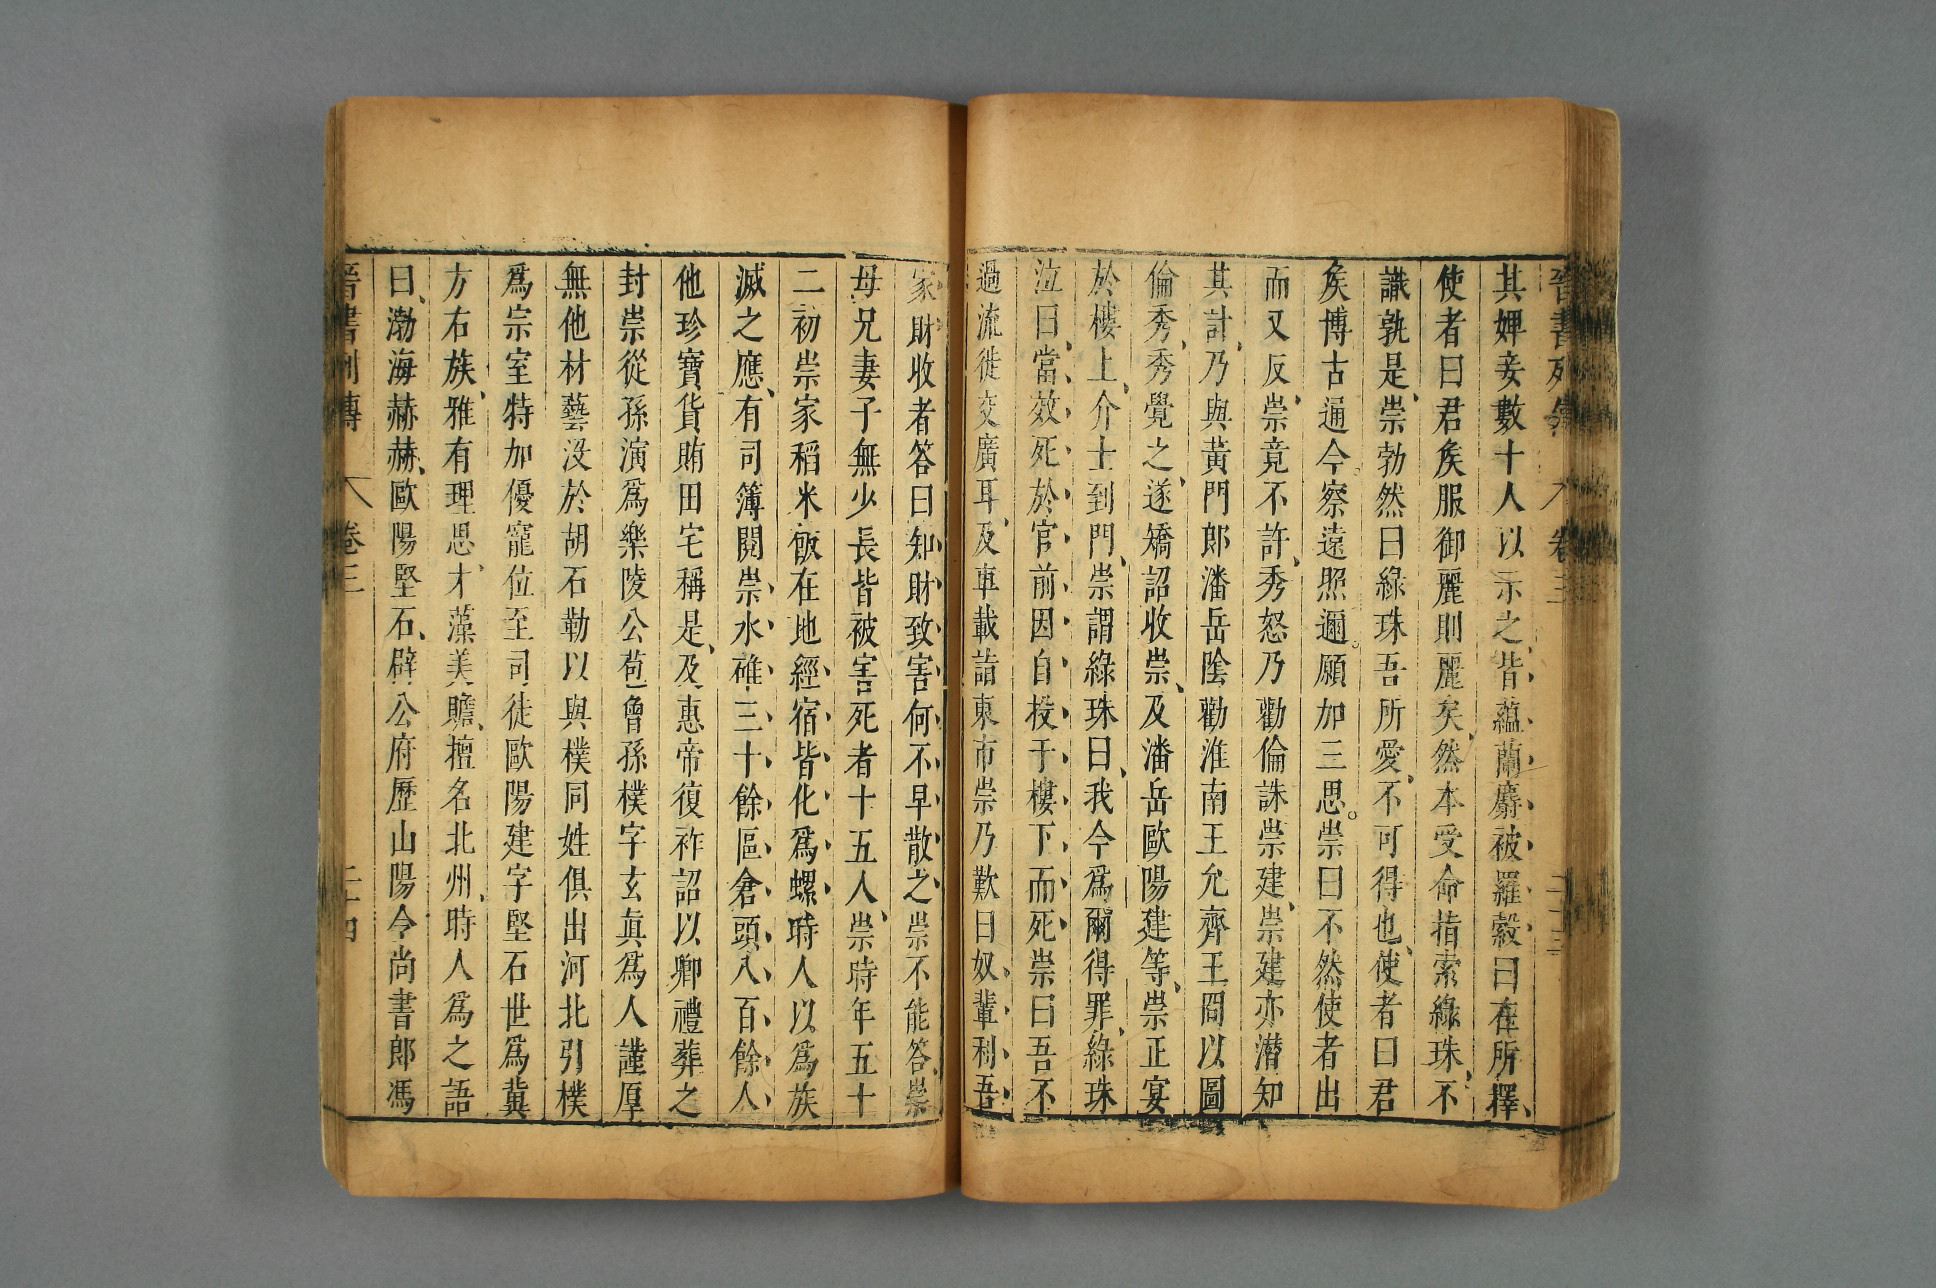 晉書列傳 卷三 二十三
其婢妾數十人以示之、皆蘊蘭麝被羅縠曰在所擇、
使者曰君矦服御麗則麗矣、然本受命指索綠珠、不
識孰是、崇勃然曰綠珠吾所愛、不可得也、使者曰君
矦博古通今。察遠照邇。願加三思。崇曰不然使者出
而又反、崇竟不許、秀怒乃勸倫誅崇建、崇建亦潛知
其計、乃與黃門郎潘岳陰勸淮南王允齊王冏以圖
倫秀、秀覺之、遂矯詔收崇、及潘岳歐陽建等、崇正宴
於樓上、介士到門、崇謂綠珠曰、我今爲爾得罪、綠珠
泣曰、當效死於官前因自投于樓下而死崇曰吾不
過流徙交廣耳、及車載詣東市崇乃歎曰奴輩利吾
家財收者答曰知財致害何不早散之崇不能答、崇
母兄妻子無少長皆被害死者十五人、崇時年五十
二初崇家稻米飯在地經宿皆化爲螺時人以爲族
滅之應、有司簿閱崇水碓三十餘區倉頭八百餘人、
他珍寶貨賄田宅稱是、及惠帝復祚詔以卿禮葬之
封崇從孫演爲樂陵公苞曾孫樸字玄眞爲人謹厚
無他材藝沒於胡石勒以與樸同姓俱出河北引樸
爲宗室特加優寵位至司徒歐陽建字堅石世爲冀
方右族、雅有理思、才藻美贍、擅名北州、時人爲之語
曰、渤海赫赫、歐陽堅石、辟公府歷山陽令尚書郎馮
晉書列傳 卷三 二十四